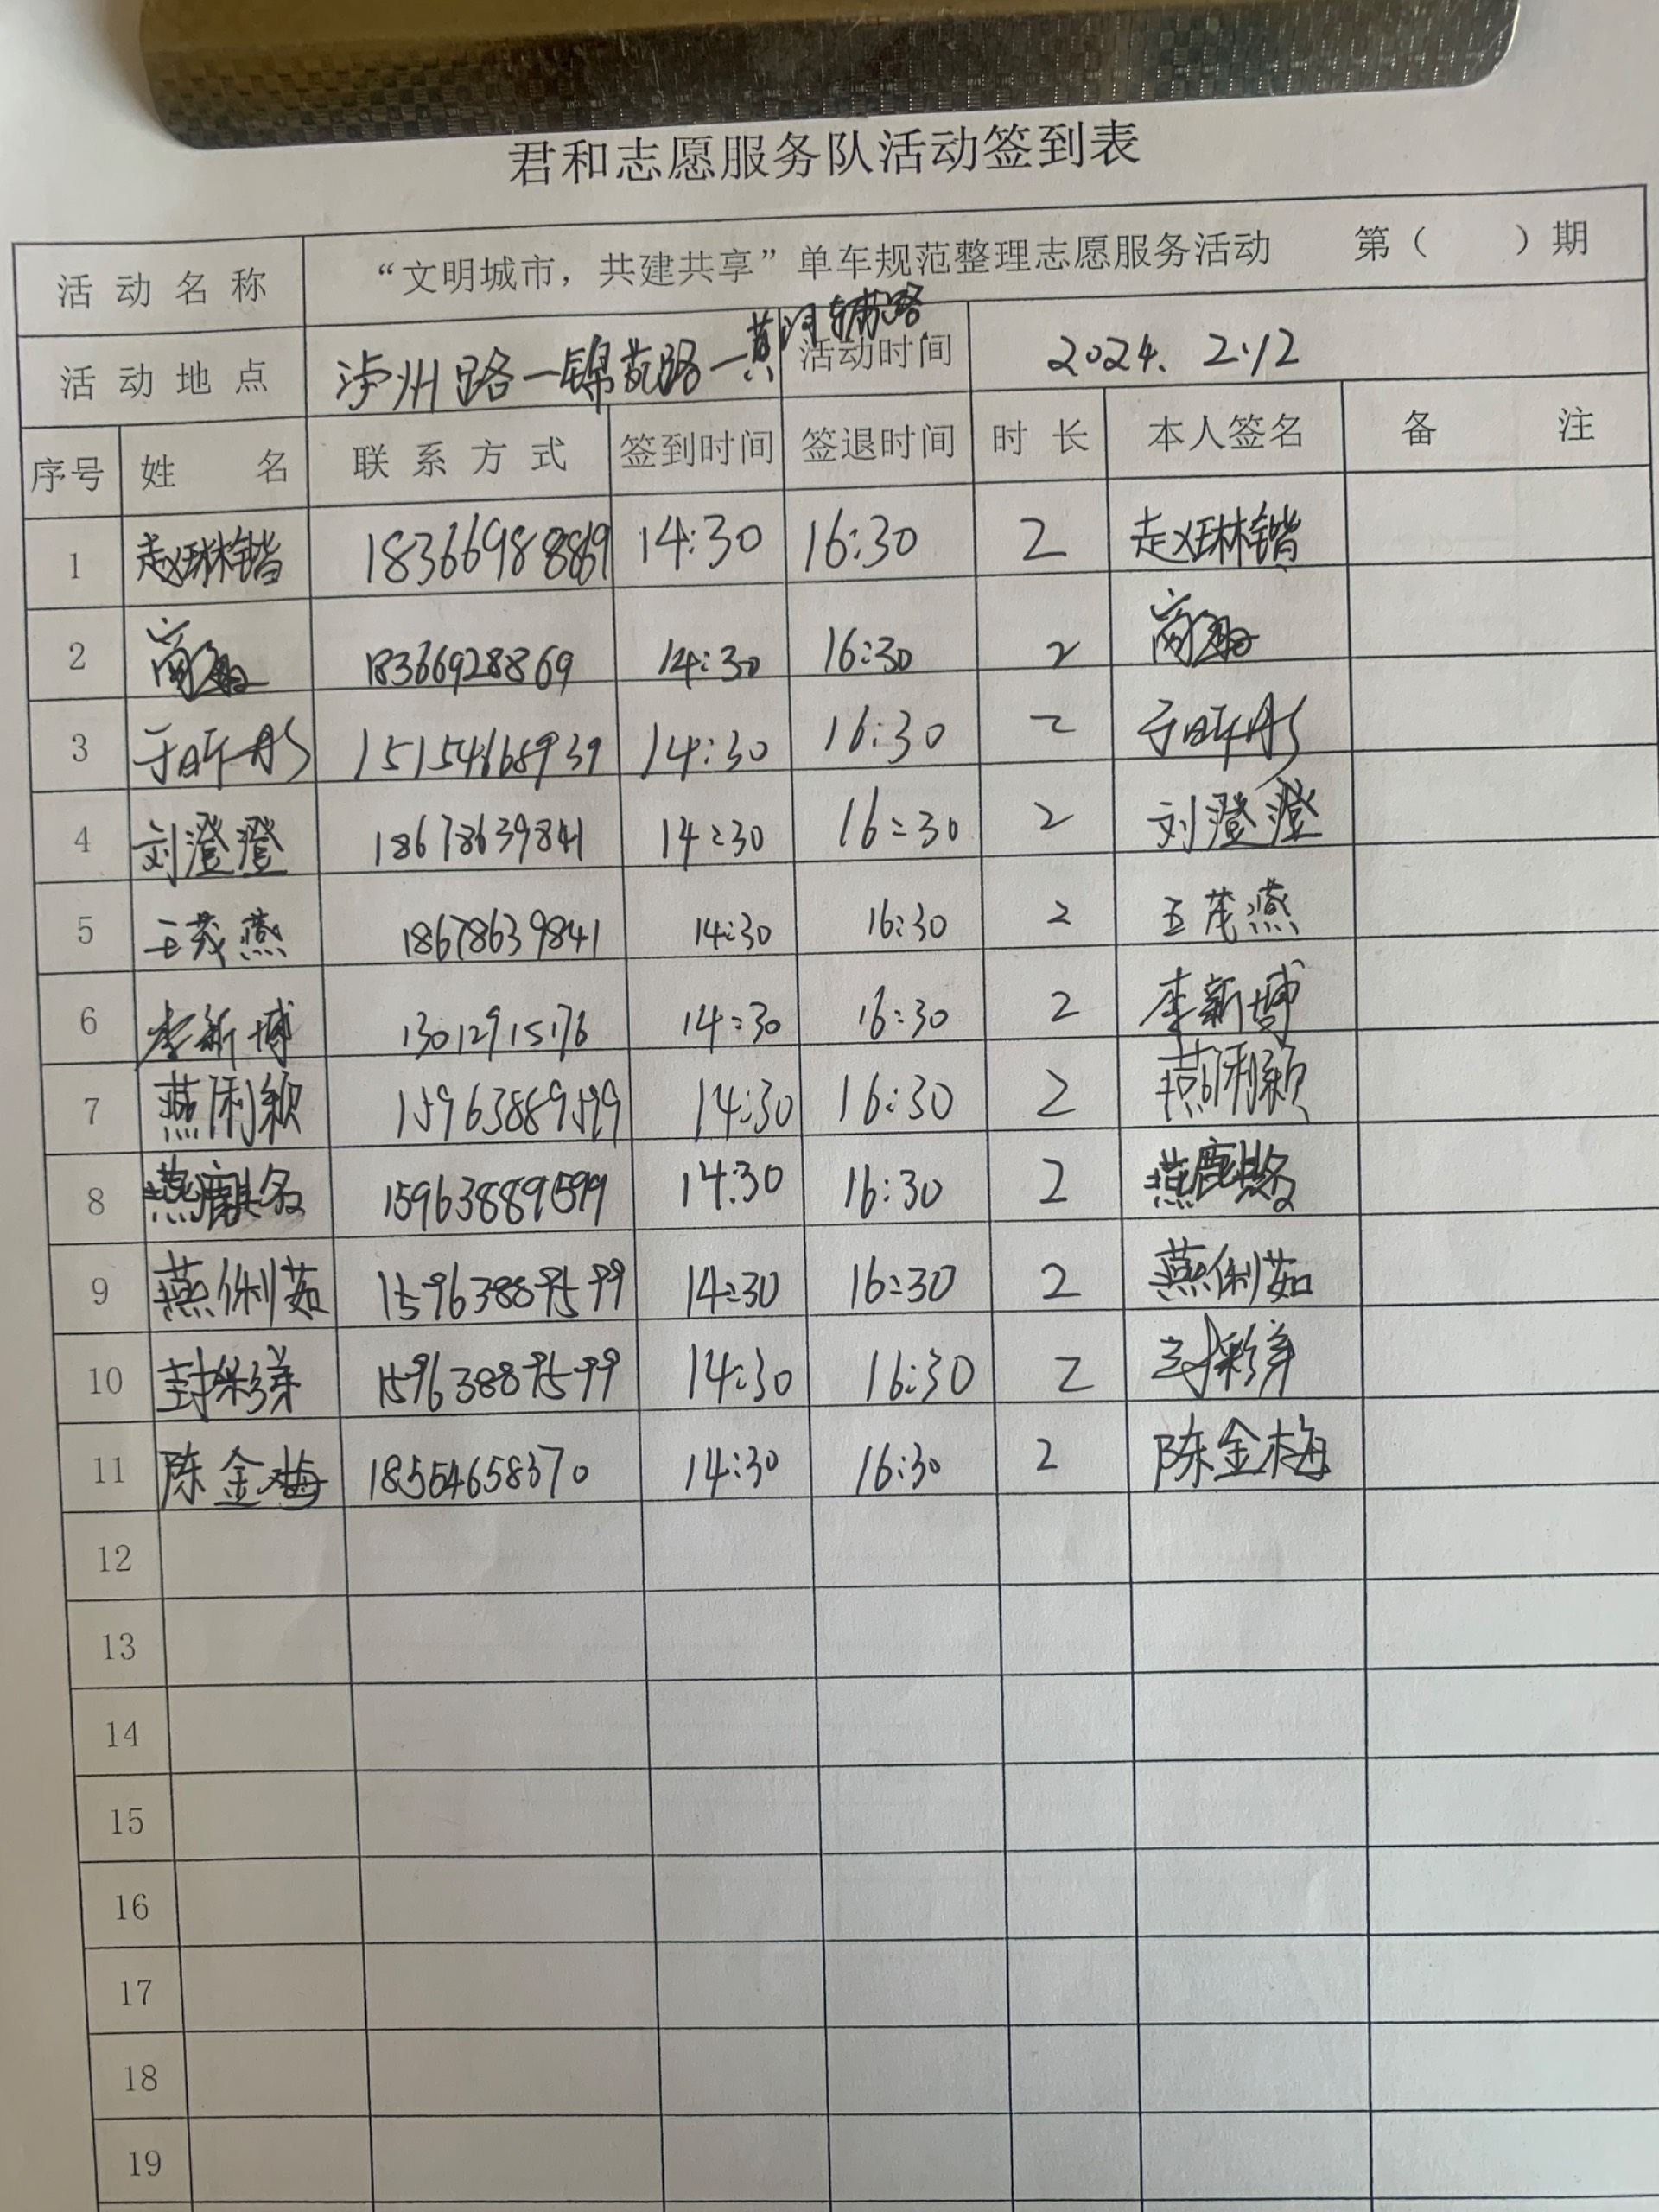 君和志愿服务队活动签到表
活动名称 “文明城市，共建共享”单车规范整理志愿服务活动 第（ ）期
活动地点 泸州路一锦苑路一黄河辅路 活动时间 2024.2.12
序号 姓名 联系方式 签到时间 签退时间 时长 本人签名 备注
1 赵琳锴 14:30 16:30 2 赵琳锴
2 18366928869 14:30 16:30 2
3 于昕彤 15154168939 14:30 16:30 2 于昕彤
4 刘澄澄 18678639841 14:30 16:30 2 刘澄澄
5 王茂燕 18678639841 14:30 16:30 2 王茂燕
6 李新博 13012915176 14:30 16:30 2 李新博
7 燕俐颖 15963889599 14:30 16:30 2 燕俐颖
8 15963889599 14:30 16:30 2
9 燕俐茹 15963889599 14:30 16:30 2 燕俐茹
10 15963889599 14:30 16:30 2
11 陈金梅 18554658370 14:30 16:30 2 陈金梅
12
13
14
15
16
17
18
19